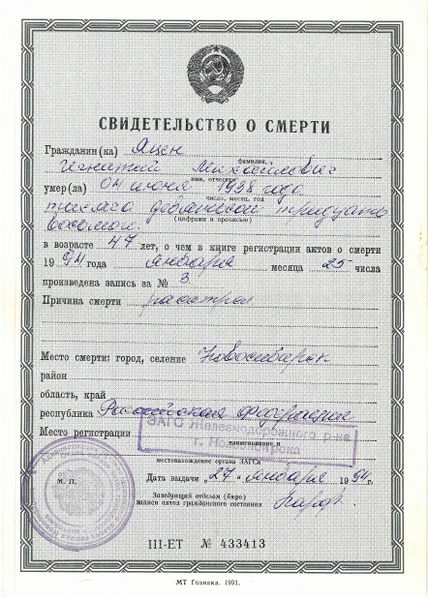 СВИДЕТЕЛЬСТВО О СМЕРТИ
Гражданин(ка) Яцен
фамилия,
Игнатий Михайлович
имя, отчество
умер(ла) 04 июня 1938 года
число, месяц, год
тысяча девятьсот тридцать
(цифрами и прописью)
восьмой
в возрасте 47 лет, о чем в книге регистрации актов о смерти
1994 года января месяца 25 числа
произведена запись за № 3
Причина смерти расстрел
Место смерти: город, селение Новосибирск
район
область, край
республика Российская Федерация
Место регистрации
ЗАГС Железнодорожного р-на
г. Новосибирска
наименование и
местонахождение органа ЗАГСа
М. П.
Дата выдачи „27“ января 1994 г.
Заведующий отделом (бюро)
записи актов гражданского состояния
III-ЕТ № 433413
МТ Гознака. 1991.